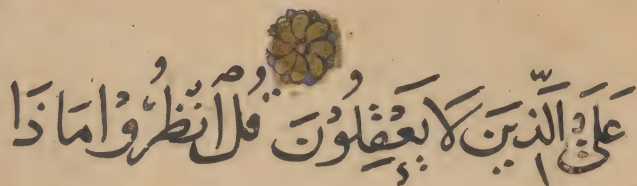 عَلَى الَّذِينَ لَا يَعْقِلُونَ قُلِ انْظُرُوا مَاذَا